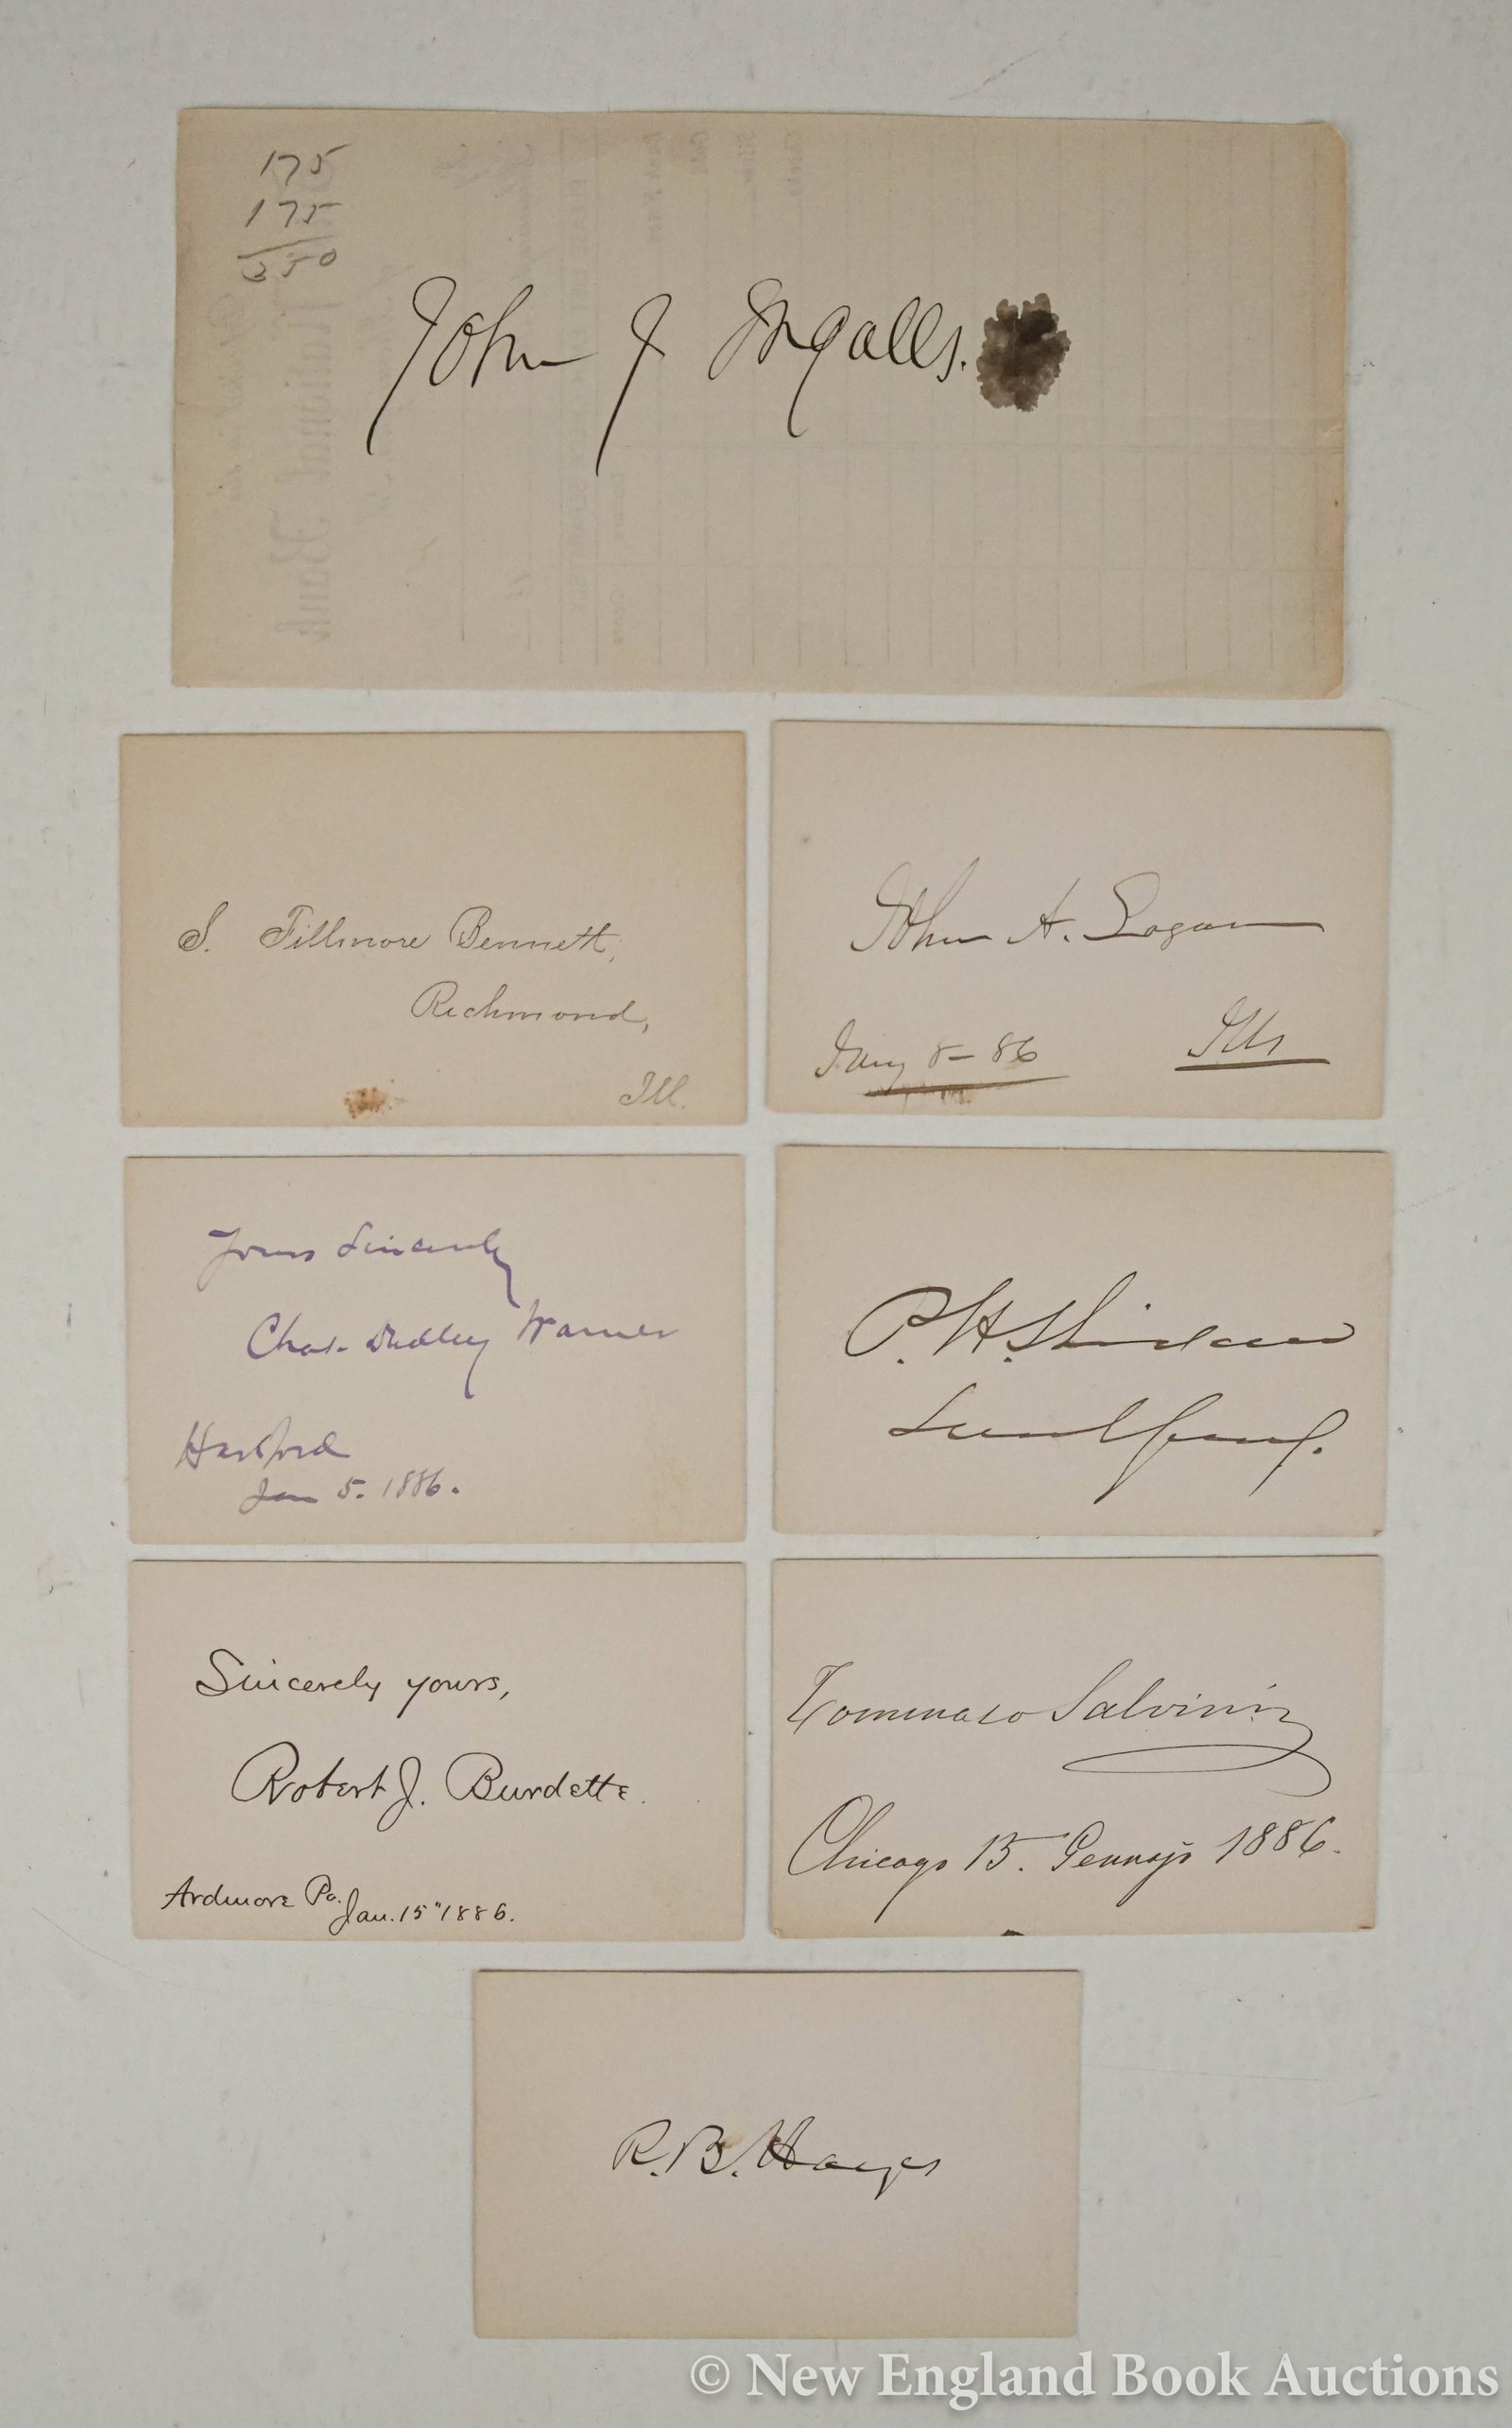 175
175
350
John J Ingalls.
National Bank
S. Fillmore Bennett,
Richmond,
Ill.
John A. Logan
Jany 8 – 86
Ills
Yours Sincerely
Chas. Dudley Warner
Hartford
Jan 5. 1886.
P. H. Sheridan
Lieut Genl.
Sincerely yours,
Robert J. Burdette.
Ardmore Pa.
Jan. 15" 1886.
Tommaso Salvini
Chicago 15. Gennajo 1886.
R. B. Hayes
© New England Book Auctions